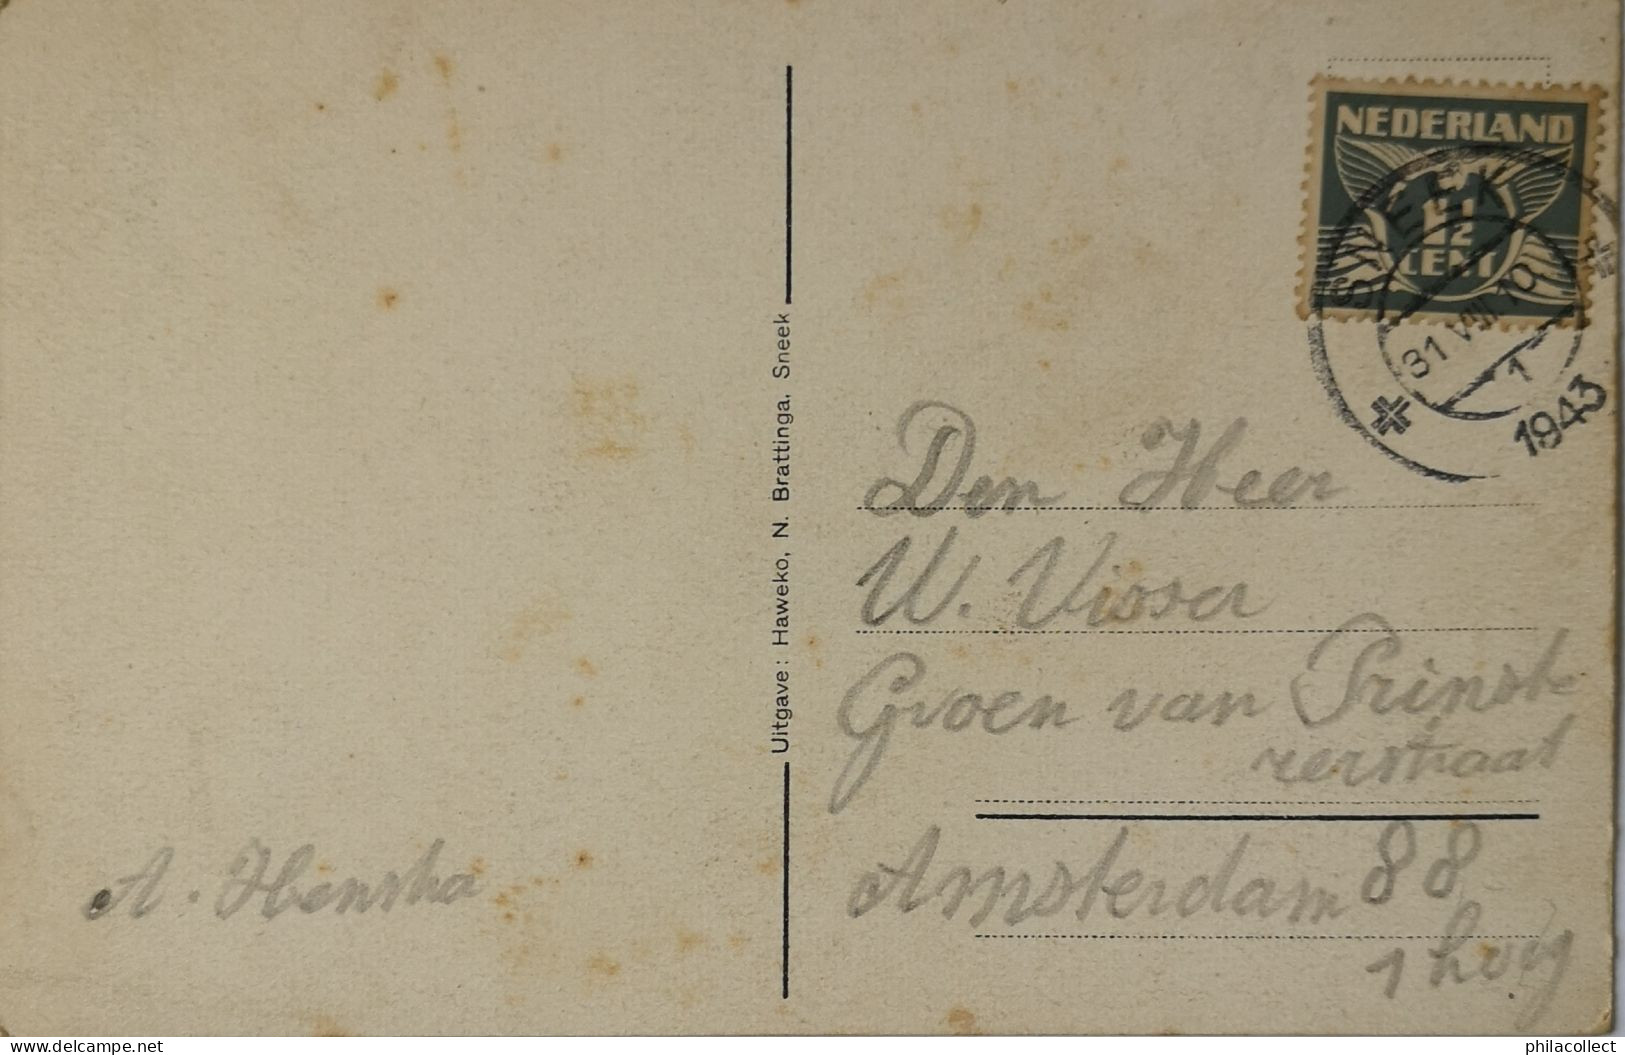 NEDERLAND
1½
CENT
SNEEK
31 VIII 10
1
1943
Uitgave: Haweko, N. Brattinga, Sneek
Den Heer
W. Visser
Groen van Prinst-
rerstraat
Amsterdam 88
1 hoig
A. Henstra
delcampe.net
philacollect